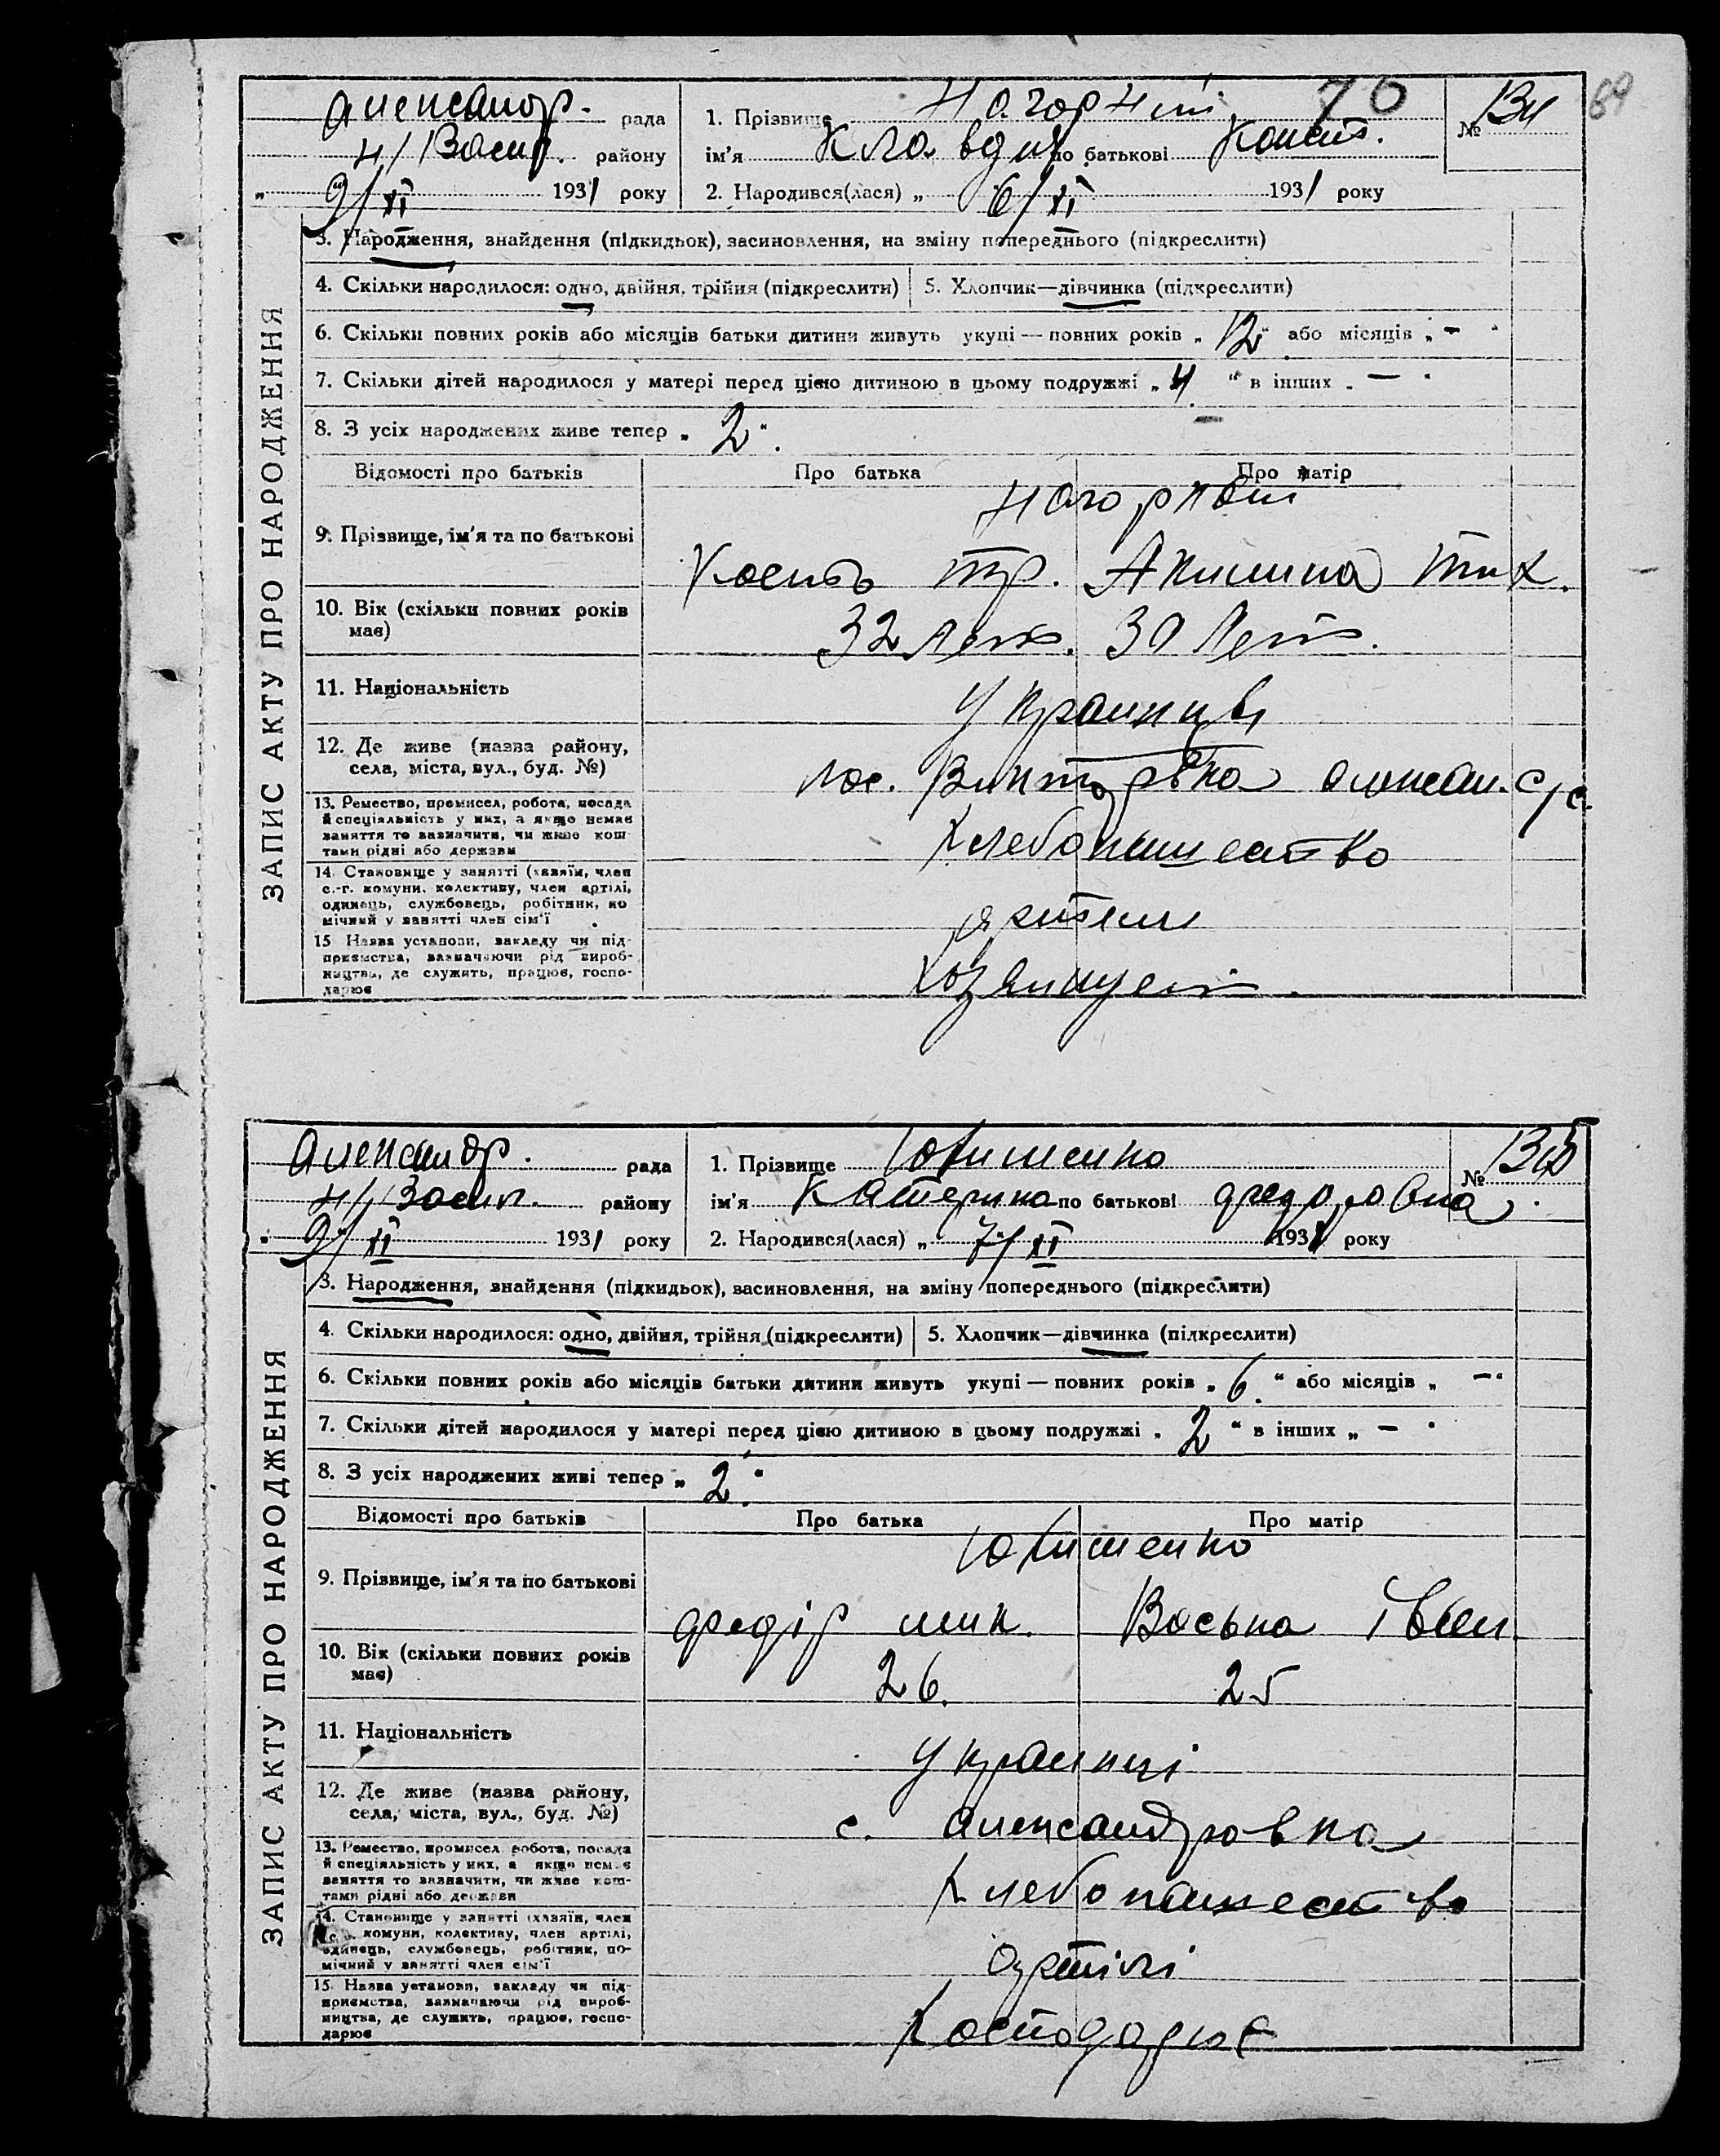 Александр. рада 1. Прізвище Нагорний 70 № 134 69
Н/Васил. району ім'я Клавдия по батькові Конст.
„ 9/XI 1931 року 2. Народився(лася) „ 6/XI 1931 року
ЗАПИС АКТУ ПРО НАРОДЖЕННЯ
3. Народження, знайдення (підкидьок), засиновлення, на зміну попереднього (підкреслити)
4. Скільки народилося: одно, двійня, трійня (підкреслити) 5. Хлопчик—дівчинка (підкреслити)
6. Скільки повних років або місяців батьки дитини живуть укупі — повних років „ 12 “ або місяців „ — “
7. Скільки дітей народилося у матері перед цією дитиною в цьому подружжі „ 4 “ в інших „ — “
8. З усіх народжених живе тепер „ 2 “.
Відомості про батьків Про батька Про матір
9. Прізвище, ім'я та по батькові
Кость Тр. Акилина Тих.
10. Вік (скільки повних років має) 32 лет. 30 лет.
11. Національність Украинцы
12. Де живе (назва району, села, міста, вул., буд. №) пос. Викторовка с/с.
13. Ремество, промисел, робота, посада
й спеціальність у них, а якщо немає
заняття то зазначити, чи живе кош-
тами рідні або держави
Хлебопашество
14. Становище у занятті (хазяїн, член
с.-г. комуни, колективу, член артілі,
одинець, службовець, робітник, по
мічний у занятті член сім'ї
15 Назва установи, закладу чи під-
приємства, зазначаючи рід вироб-
ництва, де служить, працює, госпо-
дарює
Александр. рада 1. Прізвище Юхименко № 135
Н/Васил. району ім'я Катерина по батькові Федоровна.
„ 9/XI 1931 року 2. Народився(лася) „ 7/XI 1931 року
ЗАПИС АКТУ ПРО НАРОДЖЕННЯ
3. Народження, знайдення (підкидьок), засиновлення, на зміну попереднього (підкреслити)
4. Скільки народилося: одно, двійня, трійня (підкреслити) 5. Хлопчик—дівчинка (підкреслити)
6. Скільки повних років або місяців батьки дитини живуть укупі — повних років „ 6. “ або місяців „ — “
7. Скільки дітей народилося у матері перед цією дитиною в цьому подружжі „ 2 “ в інших „ — “
8. З усіх народжених живі тепер „ 2. “
Відомості про батьків Про батька Про матір
Юхименко
9. Прізвище, ім'я та по батькові
Федір Мик. Васька Іван.
10. Вік (скільки повних років має) 26. 25
11. Національність Украинці
12. Де живе (назва району, села, міста, вул., буд. №) с. Александровка
13. Ремество, промисел робота, посада
й спеціальність у них, а якщо немає
заняття то зазначити, чи живе кош-
тами рідні або держави
Хлебопашество
14. Становище у занятті (хазяїн, член
с.-г. комуни, колективу, член артілі,
одинець, службовець, робітник, по-
мічний у занятті член сім'ї
Артілі
15. Назва установи, закладу чи під-
приємства, зазначаючи рід вироб-
ництва, де служить, працює, госпо-
дарює
Господарює